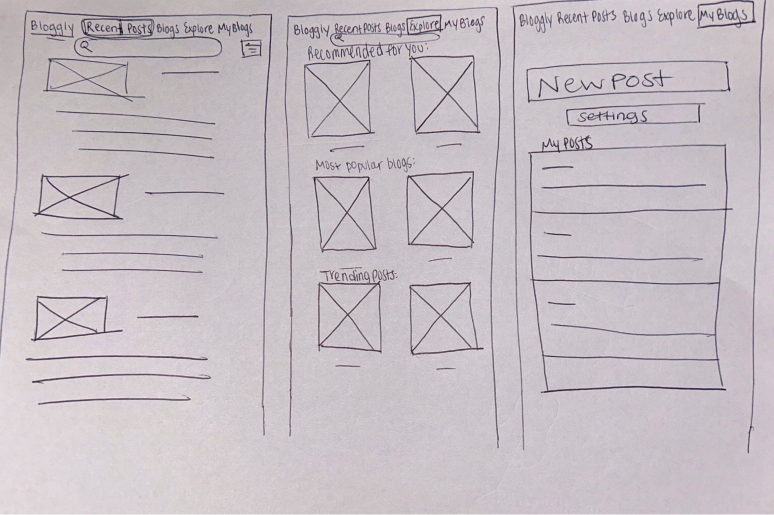 Bloggly Recent Posts Blogs Explore My Blogs
Bloggly Recent Posts Blogs Explore My Blogs
Recommended for you:
Most popular blogs:
Trending posts:
Bloggly Recent Posts Blogs Explore My Blogs
New post
settings
My Posts